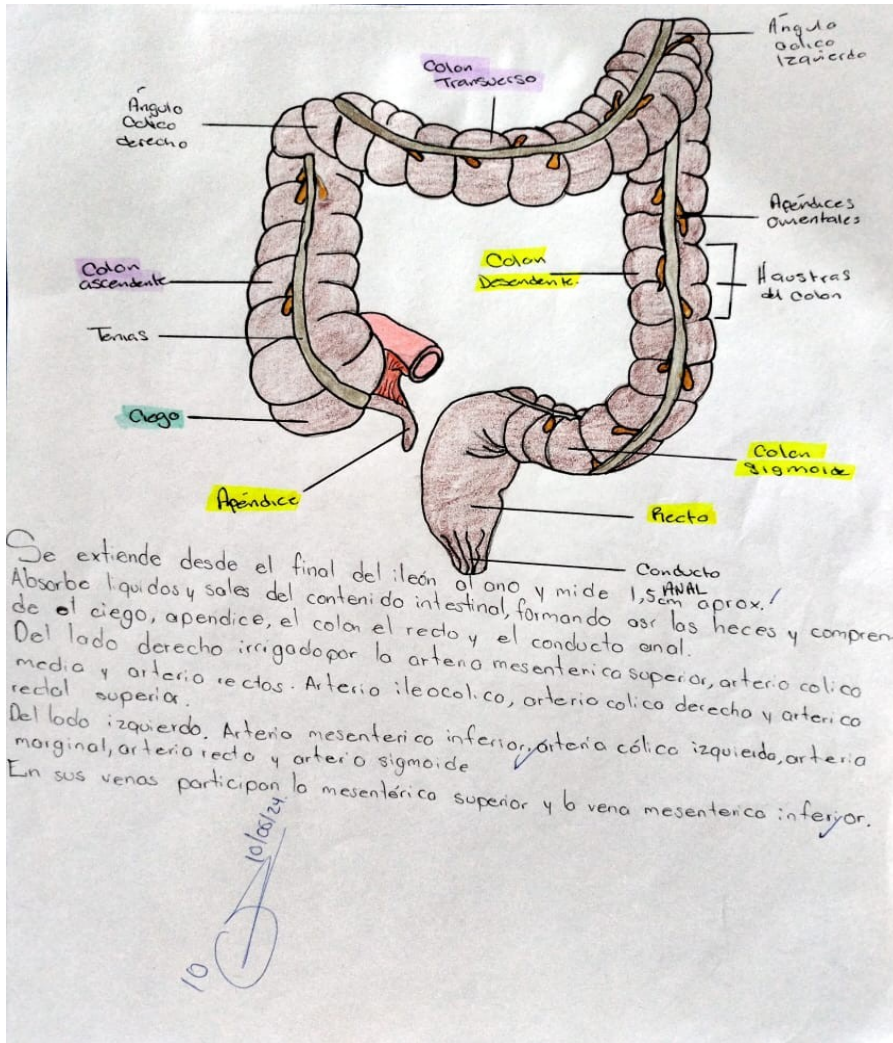 Ángulo
cólico
Izquierdo
Colon
Transverso
Ángulo
Cólico
derecho
Apéndices
omentales
Colon
ascendente
Colon
Desendente.
Haustras
del colon
Tenias
Ciego
Colon
sigmoide
Apéndice
Recto
Conducto
ANAL
Se extiende desde el final del ileón al ano y mide 1,5cm aprox.
Absorbe liquidos y sales del contenido intestinal, formando asi las heces y compren-
de el ciego, apendice, el colon el recto y el conducto anal.
Del lado derecho irrigado por la arteria mesenterica superior, arteria colica
media y arteria rectas. Arteria ileocolica, arteria colica derecha y arterica
rectal superior.
Del lado izquierdo. Arteria mesenterica inferior, arteria cólica izquierda, arteria
marginal, arteria recta y arteria sigmoide
En sus venas participan la mesentérica superior y la vena mesenterica inferior.
10/06/24
10